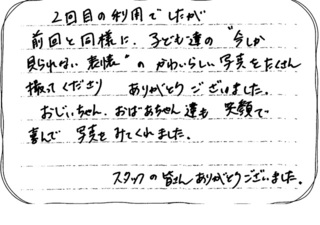 2回目の利用でしたが
前回と同様に、子ども達の“今しか
見られない表情”の かわいらしい写真をたくさん
撮ってくださり ありがとうございました。
おじいちゃん、おばあちゃん達も 笑顔で
喜んで 写真をみてくれました。
スタッフの皆さんありがとうございました。